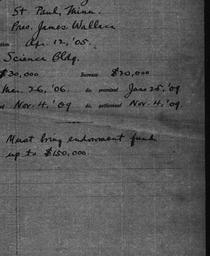 St Paul, Minn.
Pres. James Wallace
Apr. 12, '05.
Science Bldg.
$30,000 Increase $20,000
Mar. 26, '06. do. promised June 25, '09.
Nov. 4, '09 do. authorized Nov. 4, '09.
Must bring endowment fund
up to $150,000.